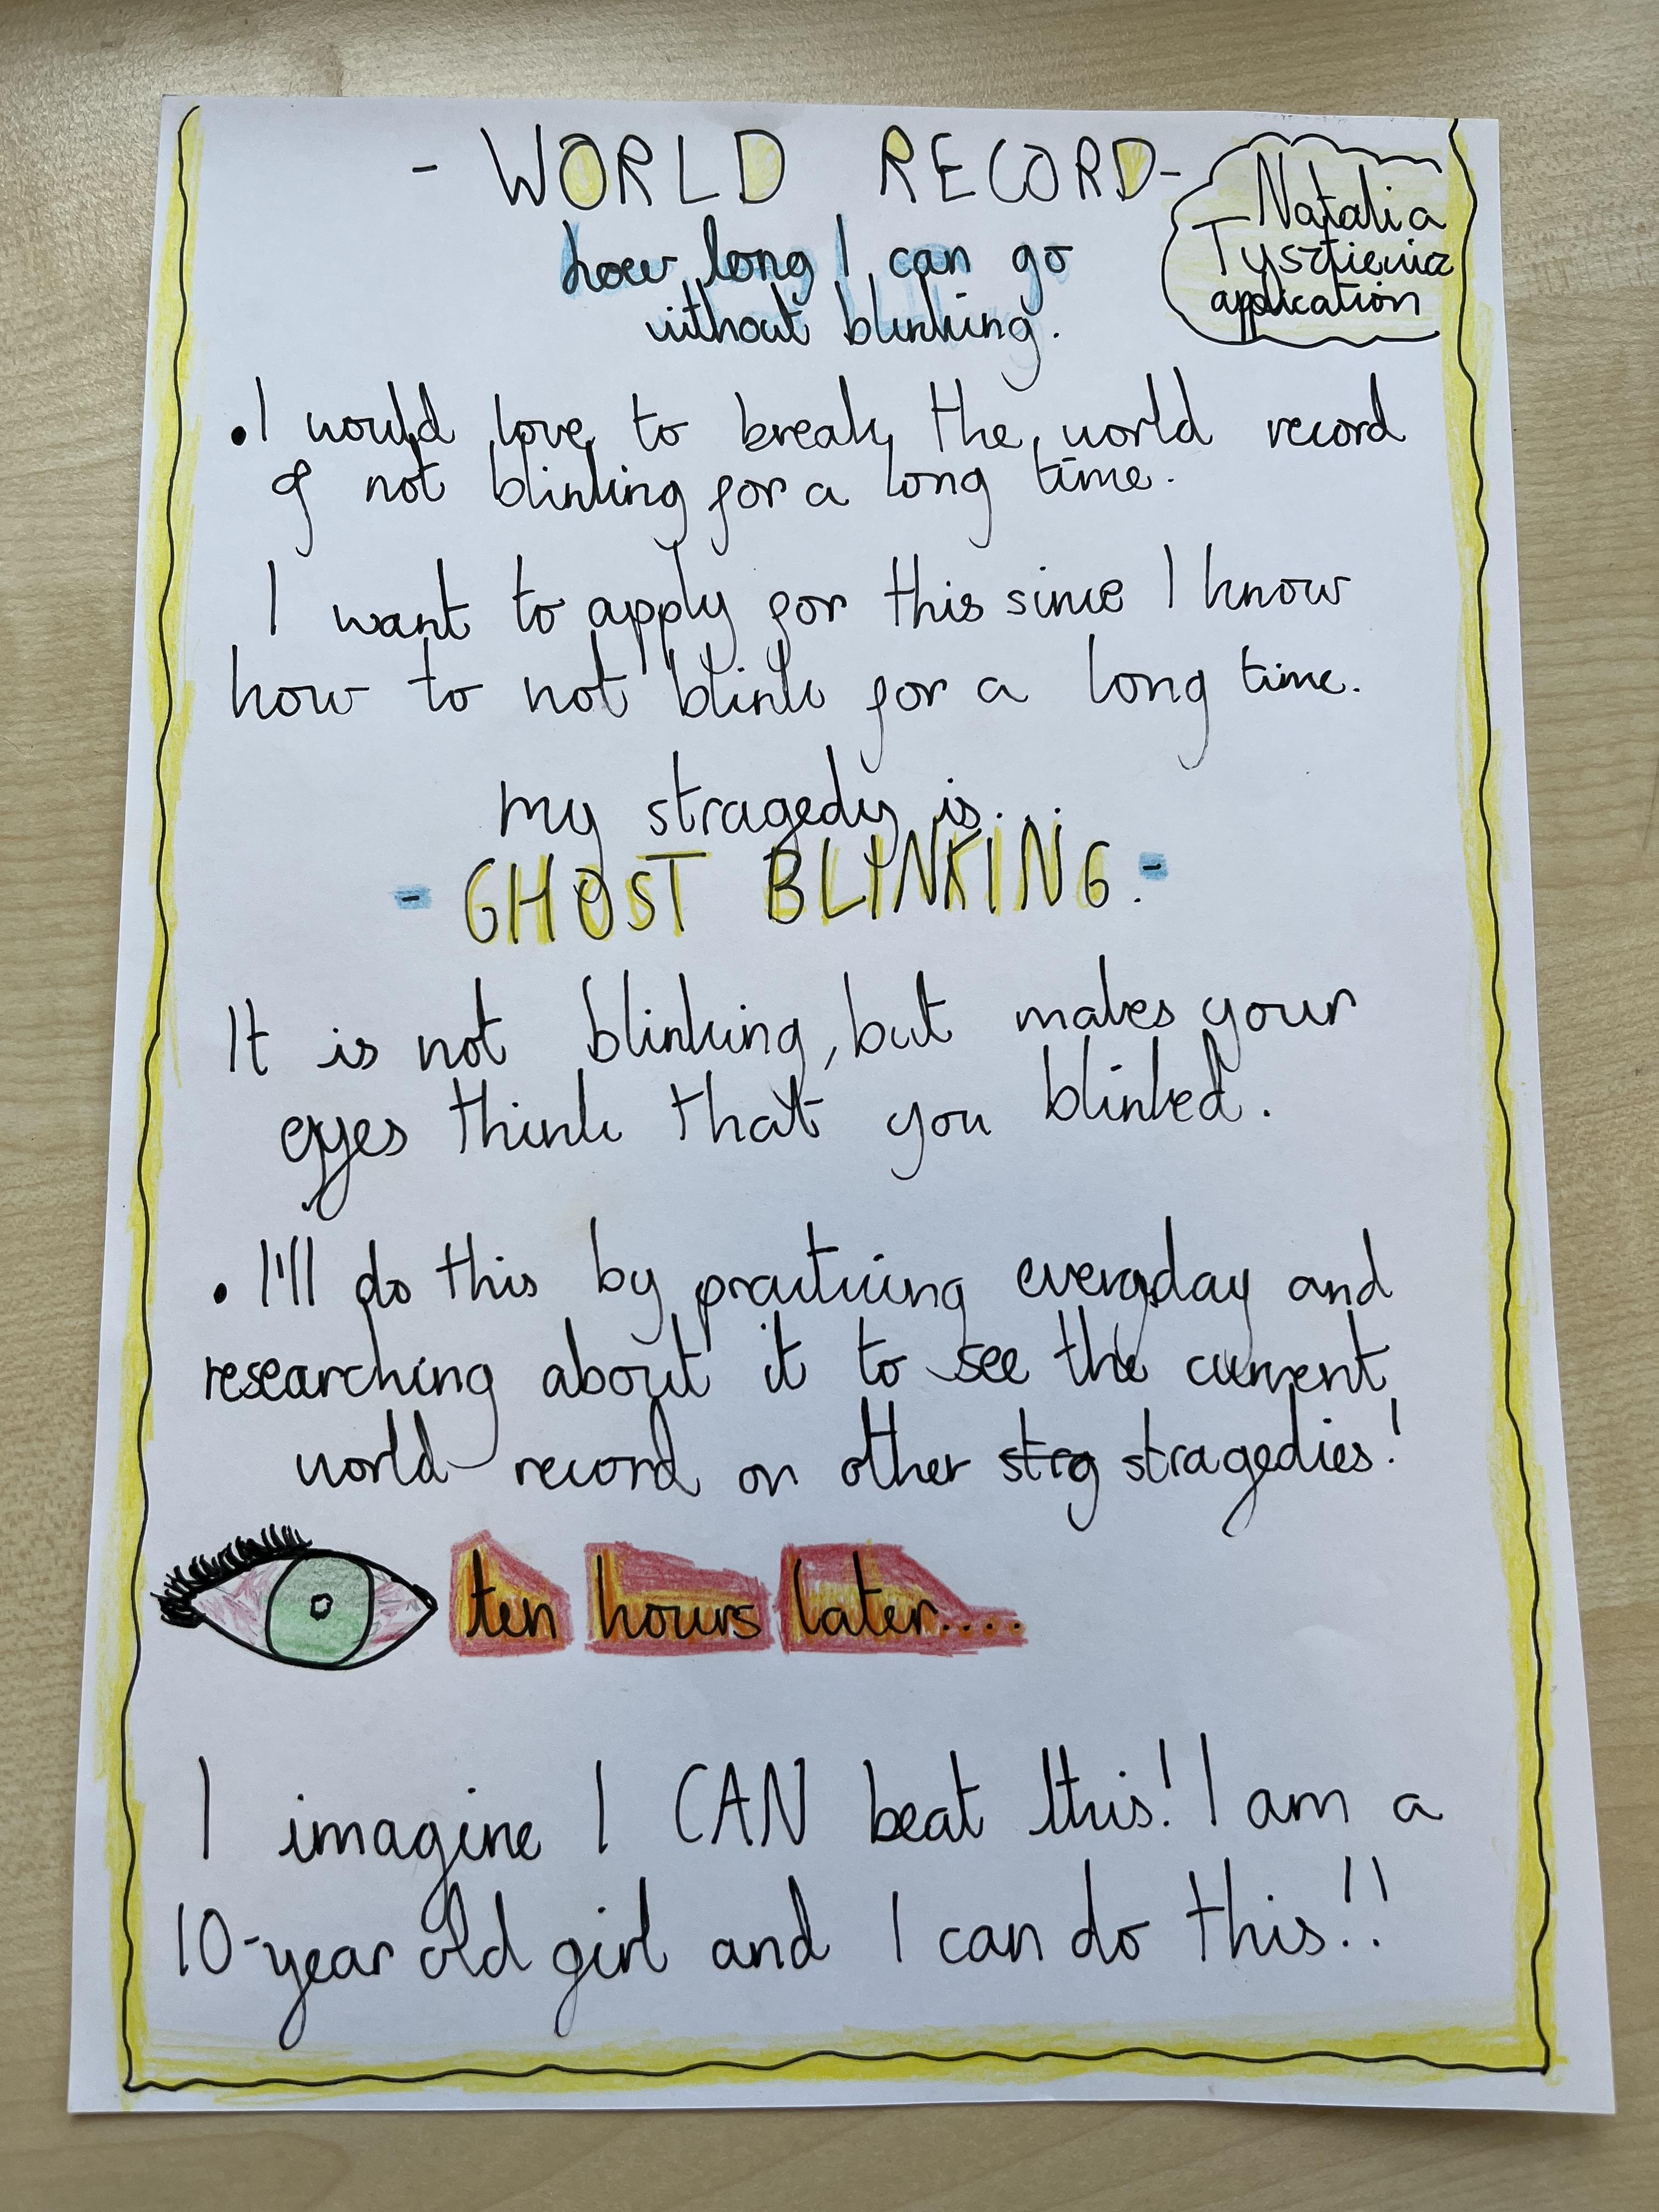 - WORLD RECORD -
Natalia
application
how long I can go
without blinking.
• I would love to break the world record
of not blinking for a long time.
I want to apply for this since I know
how to not blink for a long time.
my stragedy is...
- GHOST BLINKING. -
It is not blinking, but makes your
eyes think that you blinked.
• I'll do this by practicing everyday and
researching about it to see the current
world record on other strg stragedies!
ten hours later....
I imagine I CAN beat this! I am a
10-year old girl and I can do this!!